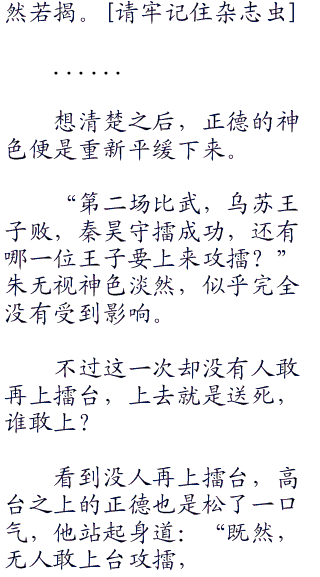 然若揭。[请牢记住杂志虫]
......
想清楚之后，正德的神
色便是重新平缓下来。
“第二场比武，乌苏王
子败，秦昊守擂成功，还有
哪一位王子要上来攻擂？”
朱无视神色淡然，似乎完全
没有受到影响。
不过这一次却没有人敢
再上擂台，上去就是送死，
谁敢上？
看到没人再上擂台，高
台之上的正德也是松了一口
气，他站起身道：“既然，
无人敢上台攻擂，